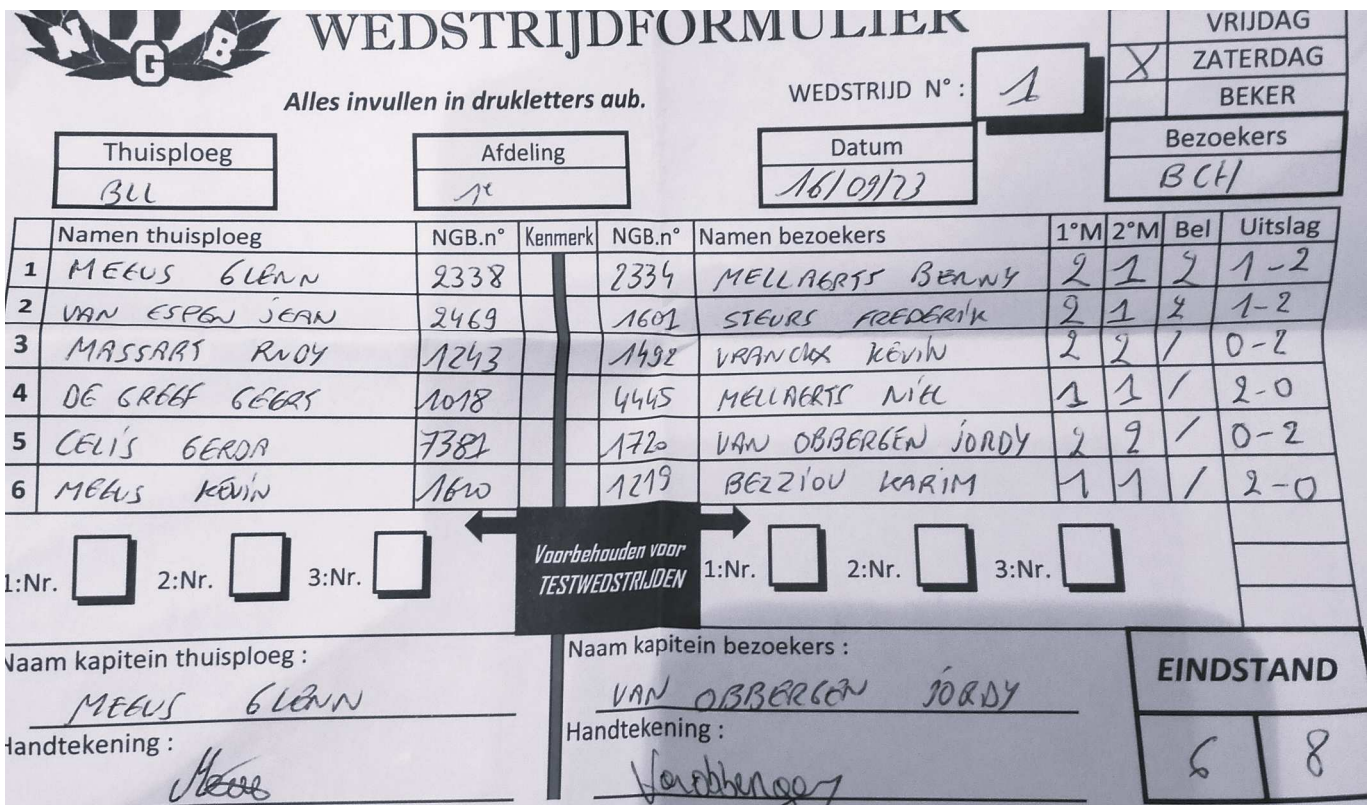 N G B
WEDSTRIJDFORMULIER
VRIJDAG
X ZATERDAG
BEKER
Alles invullen in drukletters aub.
WEDSTRIJD N° : 1
Thuisploeg
BLL
Afdeling
1e
Datum
16/09/23
Bezoekers
BCH
Namen thuisploeg NGB.n° Kenmerk NGB.n° Namen bezoekers 1°M 2°M Bel Uitslag
1 MEEUS GLENN 2338 2334 MELLAERTS BENNY 2 1 2 1-2
2 VAN ESPEN JEAN 2469 1601 STEURS FREDERIK 2 1 2 1-2
3 MASSART RUDY 1243 1492 VRANCKX KÉVIN 2 2 / 0-2
4 DE GREEF GEERT 1018 4445 MELLAERTS NIEL 1 1 / 2-0
5 CELIS GERDA 7381 1720 VAN OBBERGEN JORDY 2 2 / 0-2
6 MEEUS KÉVIN 1610 1219 BEZZIOU KARIM 1 1 / 2-0
1:Nr. 2:Nr. 3:Nr.
Voorbehouden voor
TESTWEDSTRIJDEN
1:Nr. 2:Nr. 3:Nr.
Naam kapitein thuisploeg :
MEEUS GLENN
Handtekening :
Meeus
Naam kapitein bezoekers :
VAN OBBERGEN JORDY
Handtekening :
Vanobbergen
EINDSTAND
6 8